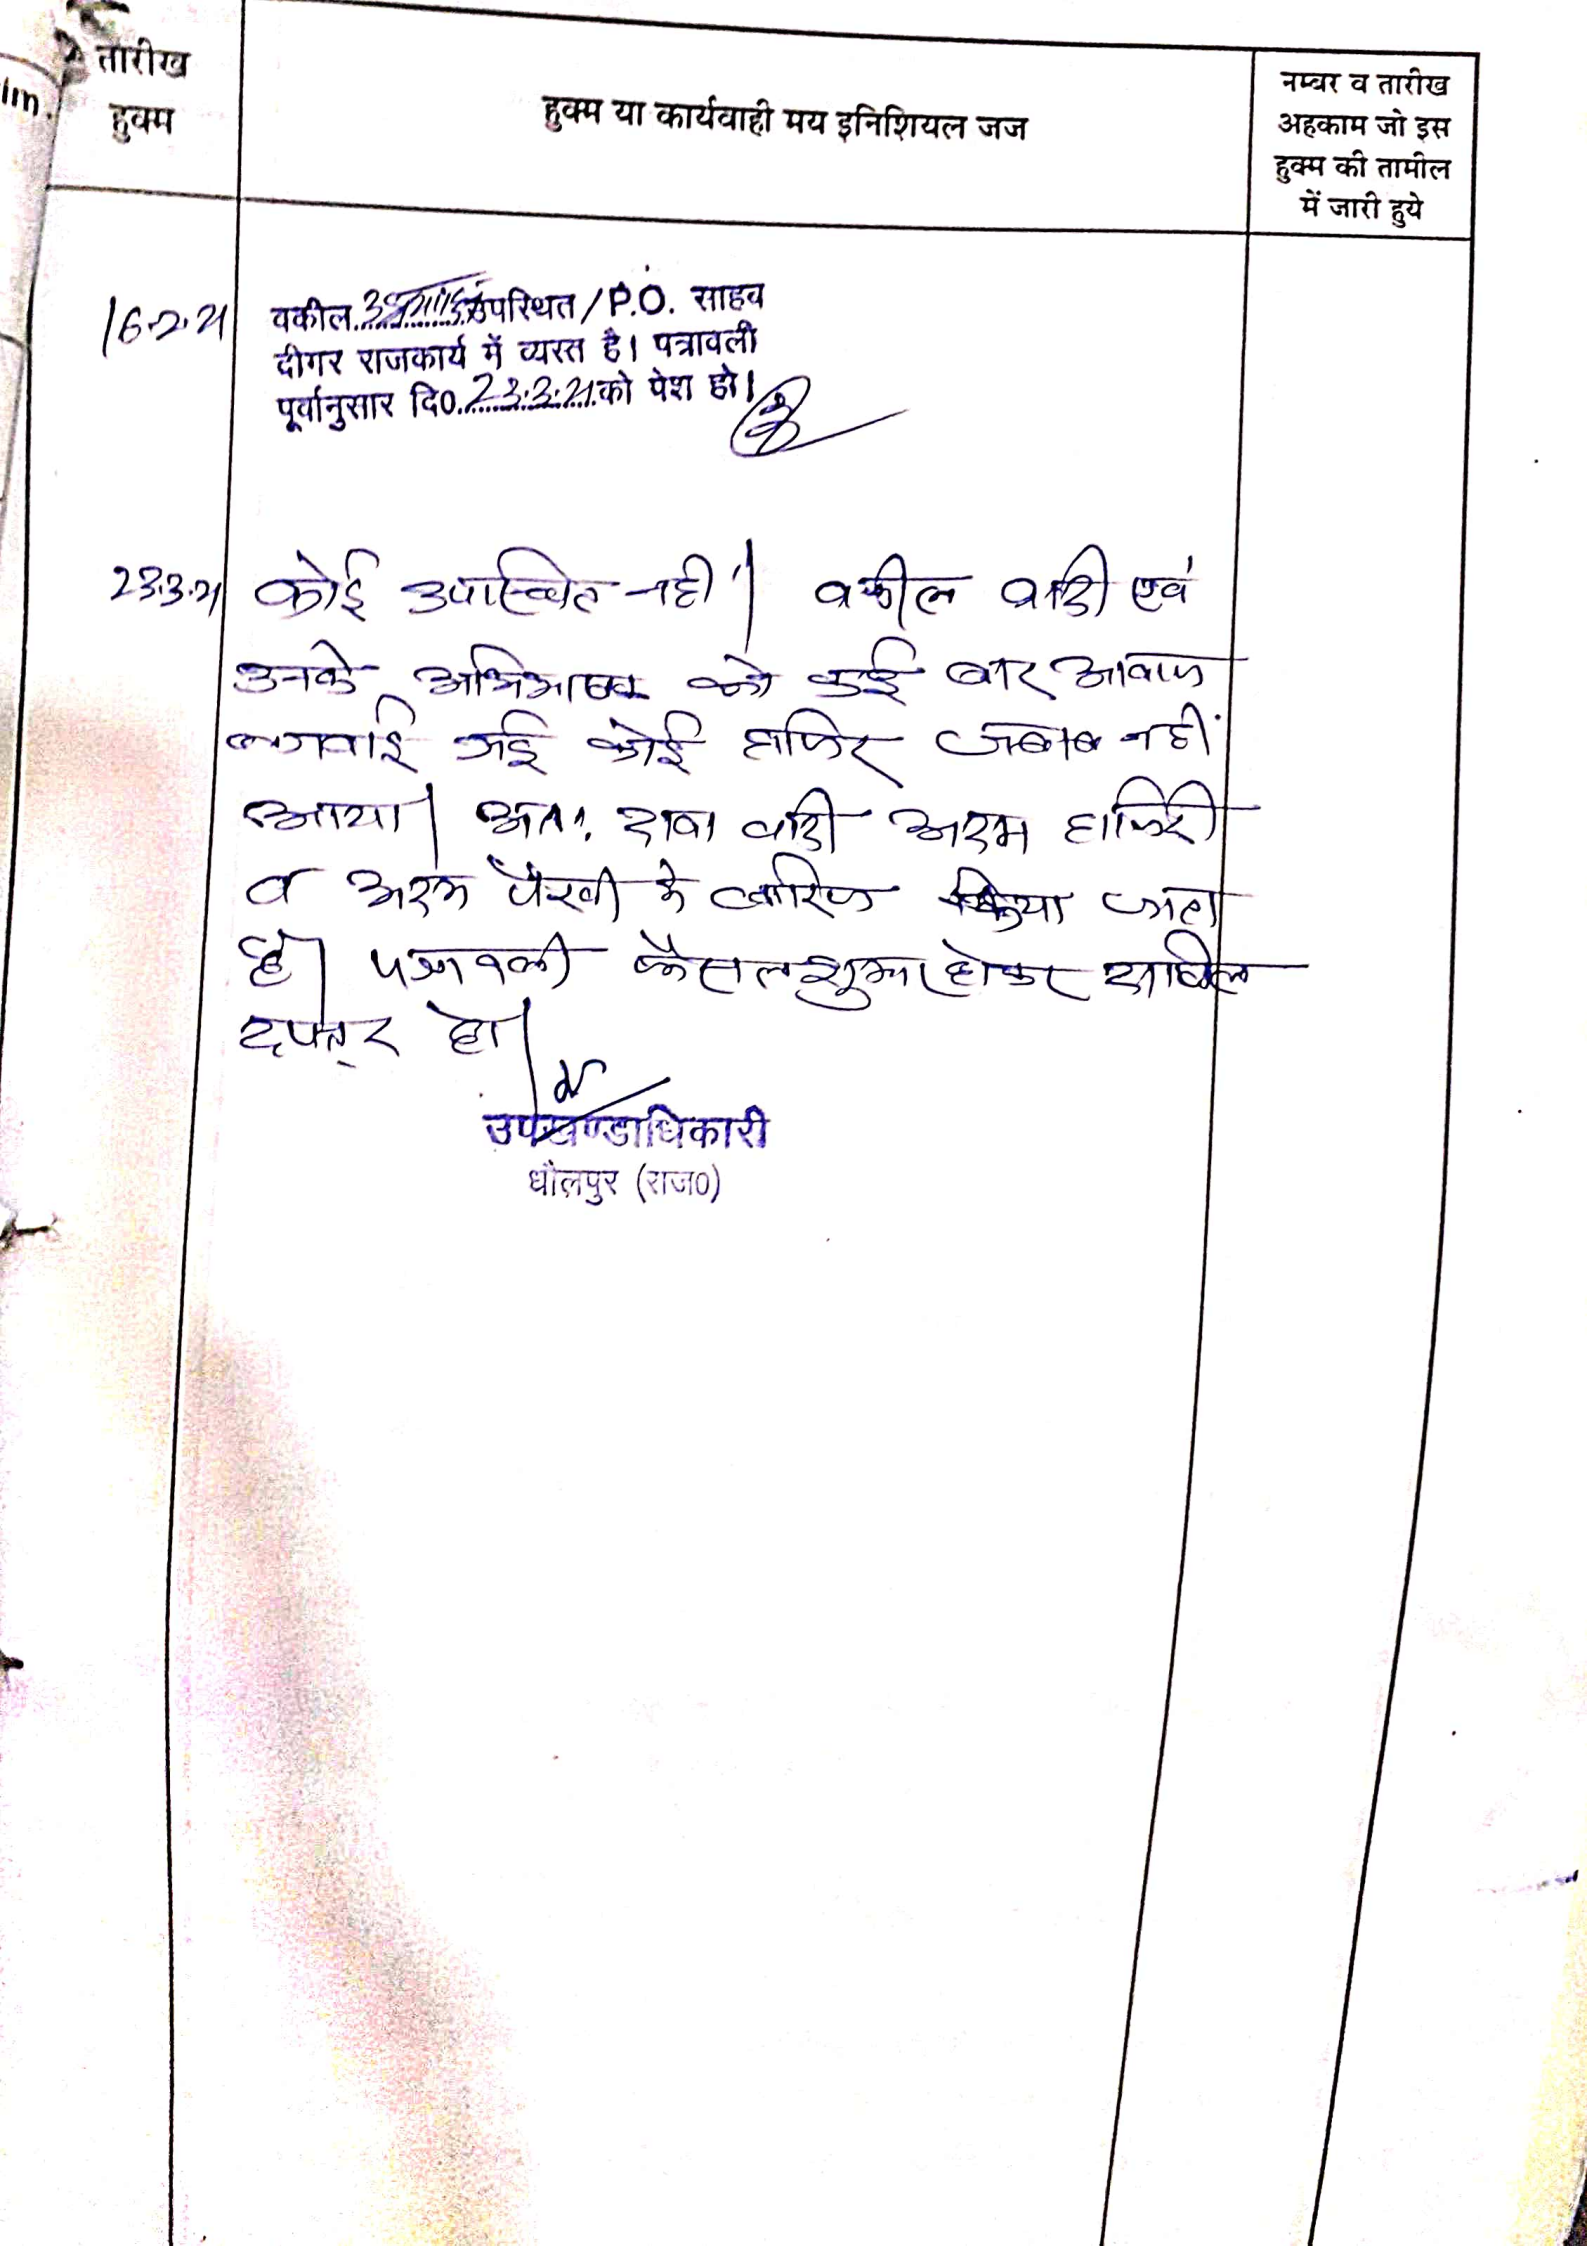 तारीख
हुक्म
हुक्म या कार्यवाही मय इनिशियल जज
नम्बर व तारीख
अहकाम जो इस
हुक्म की तामील
में जारी हुये
16.2.21
वकील उपस्थित/P.O. साहब
दीगर राजकार्य में व्यस्त है। पत्रावली
पूर्वानुसार दि0. 23.3.21 को पेश हो।
23.3.21
कोई उपस्थित नहीं। वकील वादी एवं
उनके अभिभाषक को कई बार आवाज
लगवाई गई कोई हाजिर जबाब नहीं
आया। अतः दावा वादी अदम हाजिरी
व अदम पैरवी के खारिज किया जाता
है। पत्रावली फैसल शुमार होकर दाखिल
दफ्तर हो।
उपखण्डाधिकारी
धौलपुर (राज0)